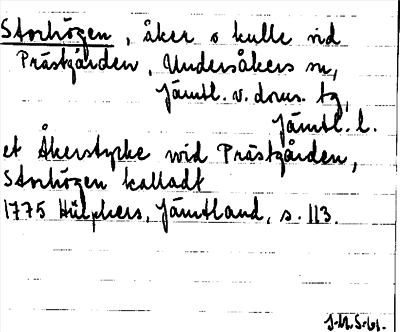 Storhögen, åker o kulle vid
Prästgården, Undersåkers sn,
Jämtl. v. doms. tg,
Jämtl. l.
et Åkerstycke wid Prästgården,
Storhögen kalladt
1775 Hülphers, Jämtland, s. 113.
J.M.S-61.